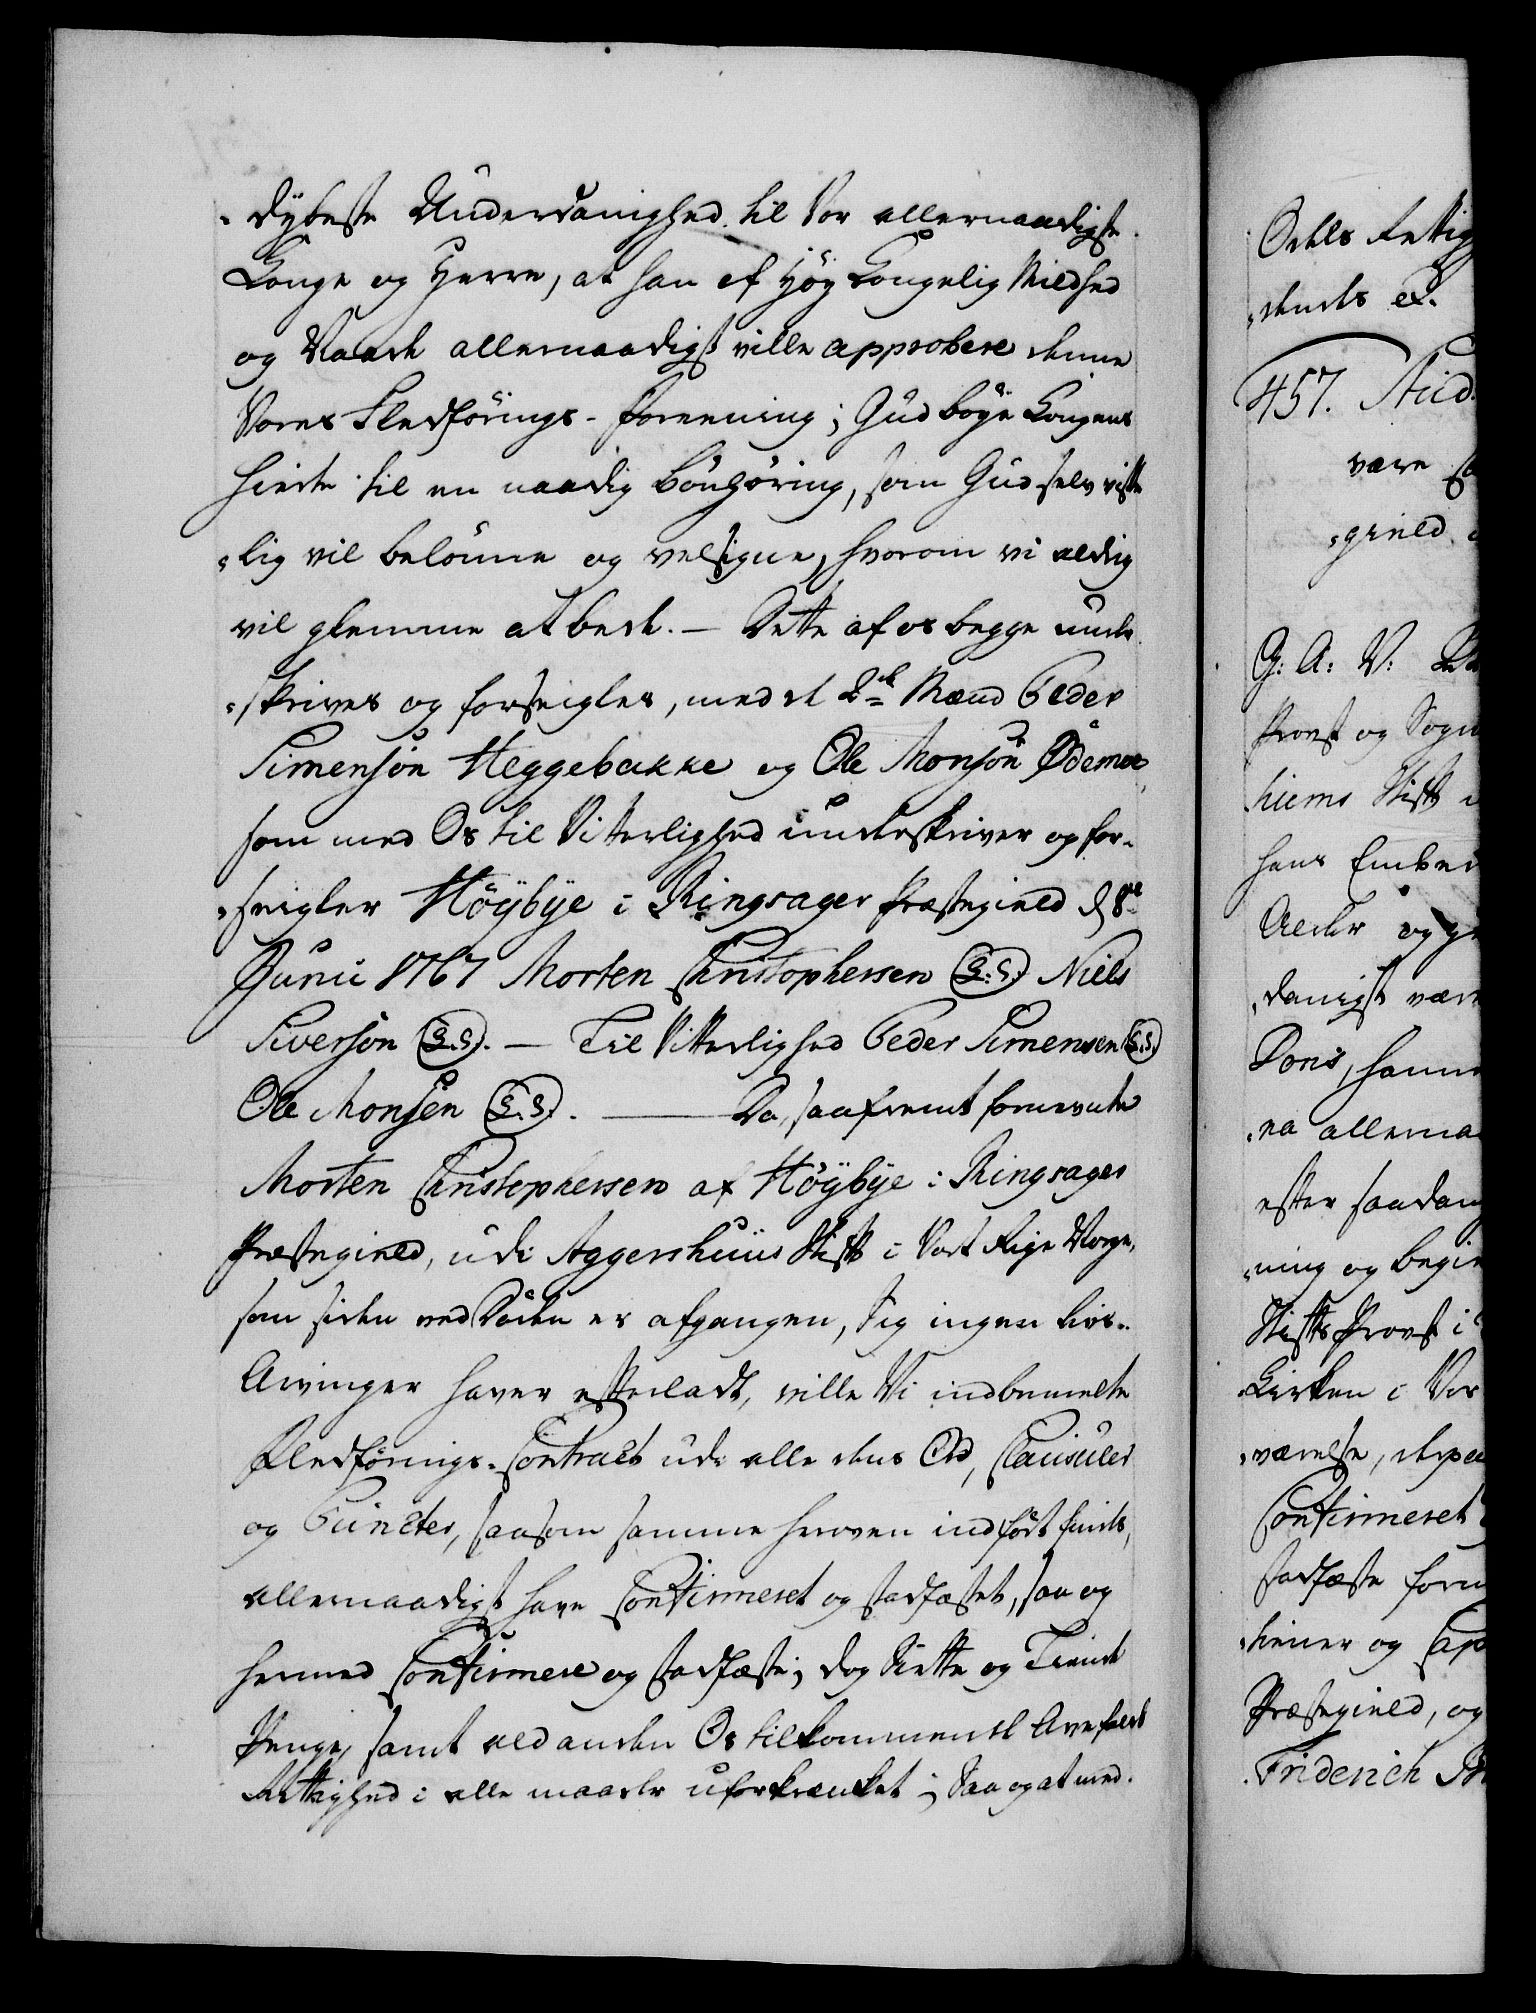 dybeste Underdanighed til Vor allernaadigste
Konge og Herre, at han af Høy Kongelig Mildhed
og Naade allernaadigst ville approbere denne
Vores Fledførings-Foreening; Gud bøye Kongens
Hierte til en naadig bønhøring, som Gud selv viste
lig vil belønne og velsigne, hvorom vi aldrig
vil glemme at bede. — Dette af os begge under
skrives og forseigles, med de 2de Mænd Peder
Simensøn Heggebakke og Ole Monsøn Ødemoe,
som med Os til Vitterlighed underskriver og for-
seigler Høybye i Ringsager Præstegield d 8de
Junii 1767 Morten Christophersen (L.S.) Niels
Siversøn (L.S.). — Til Vitterlighed Peder Simensen (L.S.)
Ole Monsen (L.S.). — Da, saafremt fornevnte
Morten Christophersen af Høybye i Ringsager
Præstegield, udi Aggershuus Stift i Vort Rige Norge,
som siden ved Døden er afgangen, Sig ingen Livs-
Arvinger haver efterladt, ville Vi indbemelte
Fledførings-Contract udi alle dens Ord, Clausuler
og Puncter, saasom samme heroven indført findes,
allernaadigst have Confirmeret og stadfæstet, saa og
hermed Confirmere og stadfæste; dog Siette og Tiende
Penge, samt ald anden Os tilkommende Arvefalds
Rettighed i alle maader uforkrænket; Saa og at med-
Ordets Rettig
dends ex.
457.
være
gield
G: A: V:
Provst og Sogn
hiems Stift
hans Embed
Alder og
danigst være
Doris, hanne
na allerna
efter saadan
ning og begie
Stifts Provst i
Kirken i Vor
værelse, derpaa
Confirmeret
stadfæste forn
tiener og Cap
Præstegield, og
Friderich